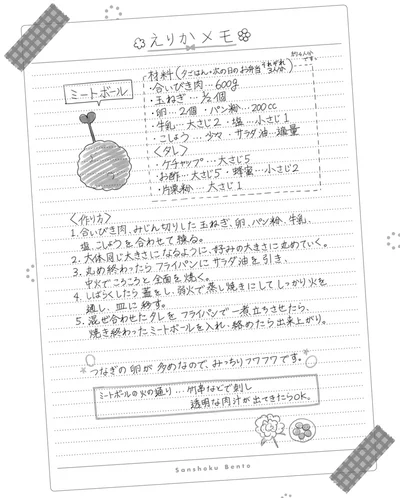 えりかメモ
ミートボール
材料(夕ごはん・次の日のお弁当 それぞれ3人分)
約4人分です。
・合いびき肉…600g
・玉ねぎ…½個
・卵…2個 ・パン粉…200cc
・牛乳…大さじ2 ・塩…小さじ1
・こしょう…少々 ・サラダ油…適量
<タレ>
・ケチャップ…大さじ5
・お酢…大さじ5 ・蜂蜜…小さじ2
・片栗粉…大さじ1
<作り方>
1. 合いびき肉、みじん切りした玉ねぎ、卵、パン粉、牛乳、
塩、こしょうを合わせて練る。
2. 大体同じ大きさになるように、好みの大きさに丸めていく。
3. 丸め終わったらフライパンにサラダ油を引き、
中火でころころと全面を焼く。
4. しばらくしたら蓋をし、弱火で蒸し焼きにしてしっかり火を
通し、皿に移す。
5. 混ぜ合わせたタレをフライパンで一煮立ちさせたら、
焼き終わったミートボールを入れ、絡めたら出来上がり。
つなぎの卵が多めなので、みっちりフワフワです。
ミートボールの火の通り…竹串などで刺し
透明な肉汁が出てきたらOK。
Sanshoku Bento